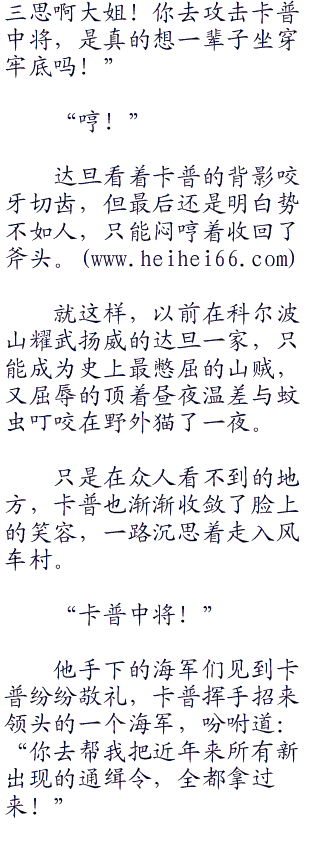 三思啊大姐！你去攻击卡普
中将，是真的想一辈子坐穿
牢底吗！”
“哼！”
达旦看着卡普的背影咬
牙切齿，但最后还是明白势
不如人，只能闷哼着收回了
斧头。(www.heihei66.com)
就这样，以前在科尔波
山耀武扬威的达旦一家，只
能成为史上最憋屈的山贼，
又屈辱的顶着昼夜温差与蚊
虫叮咬在野外猫了一夜。
只是在众人看不到的地
方，卡普也渐渐收敛了脸上
的笑容，一路沉思着走入风
车村。
“卡普中将！”
他手下的海军们见到卡
普纷纷敬礼，卡普挥手招来
领头的一个海军，吩咐道：
“你去帮我把近年来所有新
出现的通缉令，全都拿过
来！”